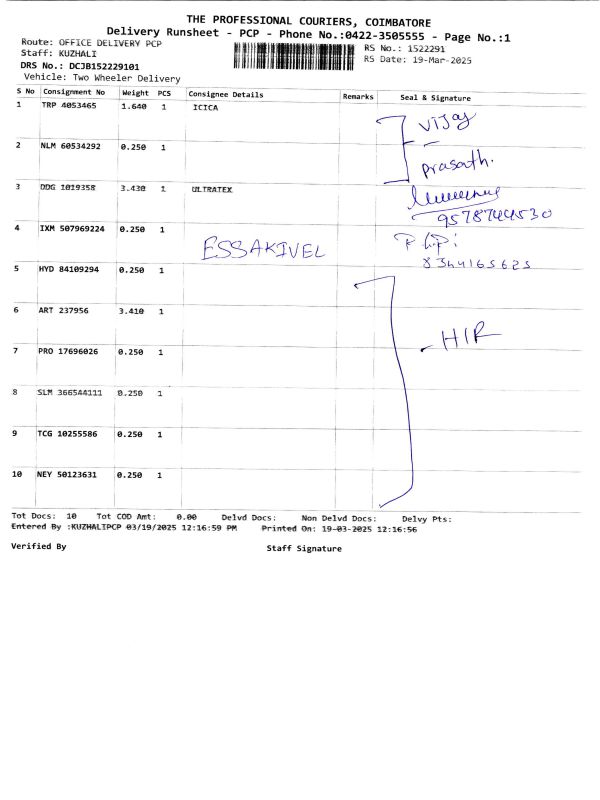 THE PROFESSIONAL COURIERS, COIMBATORE
Delivery Runsheet - PCP - Phone No.:0422-3505555 - Page No.:1
Route: OFFICE DELIVERY PCP
Staff: KUZHALI
DRS No.: DCJB152229101
Vehicle: Two Wheeler Delivery
RS No.: 1522291
RS Date: 19-Mar-2025
S No Consignment No Weight PCS Consignee Details Remarks Seal & Signature
1 TRP 4053465 1.640 1 ICICA
Vijay
2 NLM 60534292 0.250 1
prasath.
3 DDG 1019358 3.430 1 ULTRATEX
9578744530
4 IXM 507969224 0.250 1
ESSAKIVEL
8344165625
5 HYD 84109294 0.250 1
6 ART 237956 3.410 1
HIR
7 PRO 17696026 0.250 1
8 SLM 366544111 0.250 1
9 TCG 10255586 0.250 1
10 NEY 50123631 0.250 1
Tot Docs: 10 Tot COD Amt: 0.00 Delvd Docs: Non Delvd Docs: Delvy Pts:
Entered By :KUZHALIPCP 03/19/2025 12:16:59 PM Printed On: 19-03-2025 12:16:56
Verified By Staff Signature